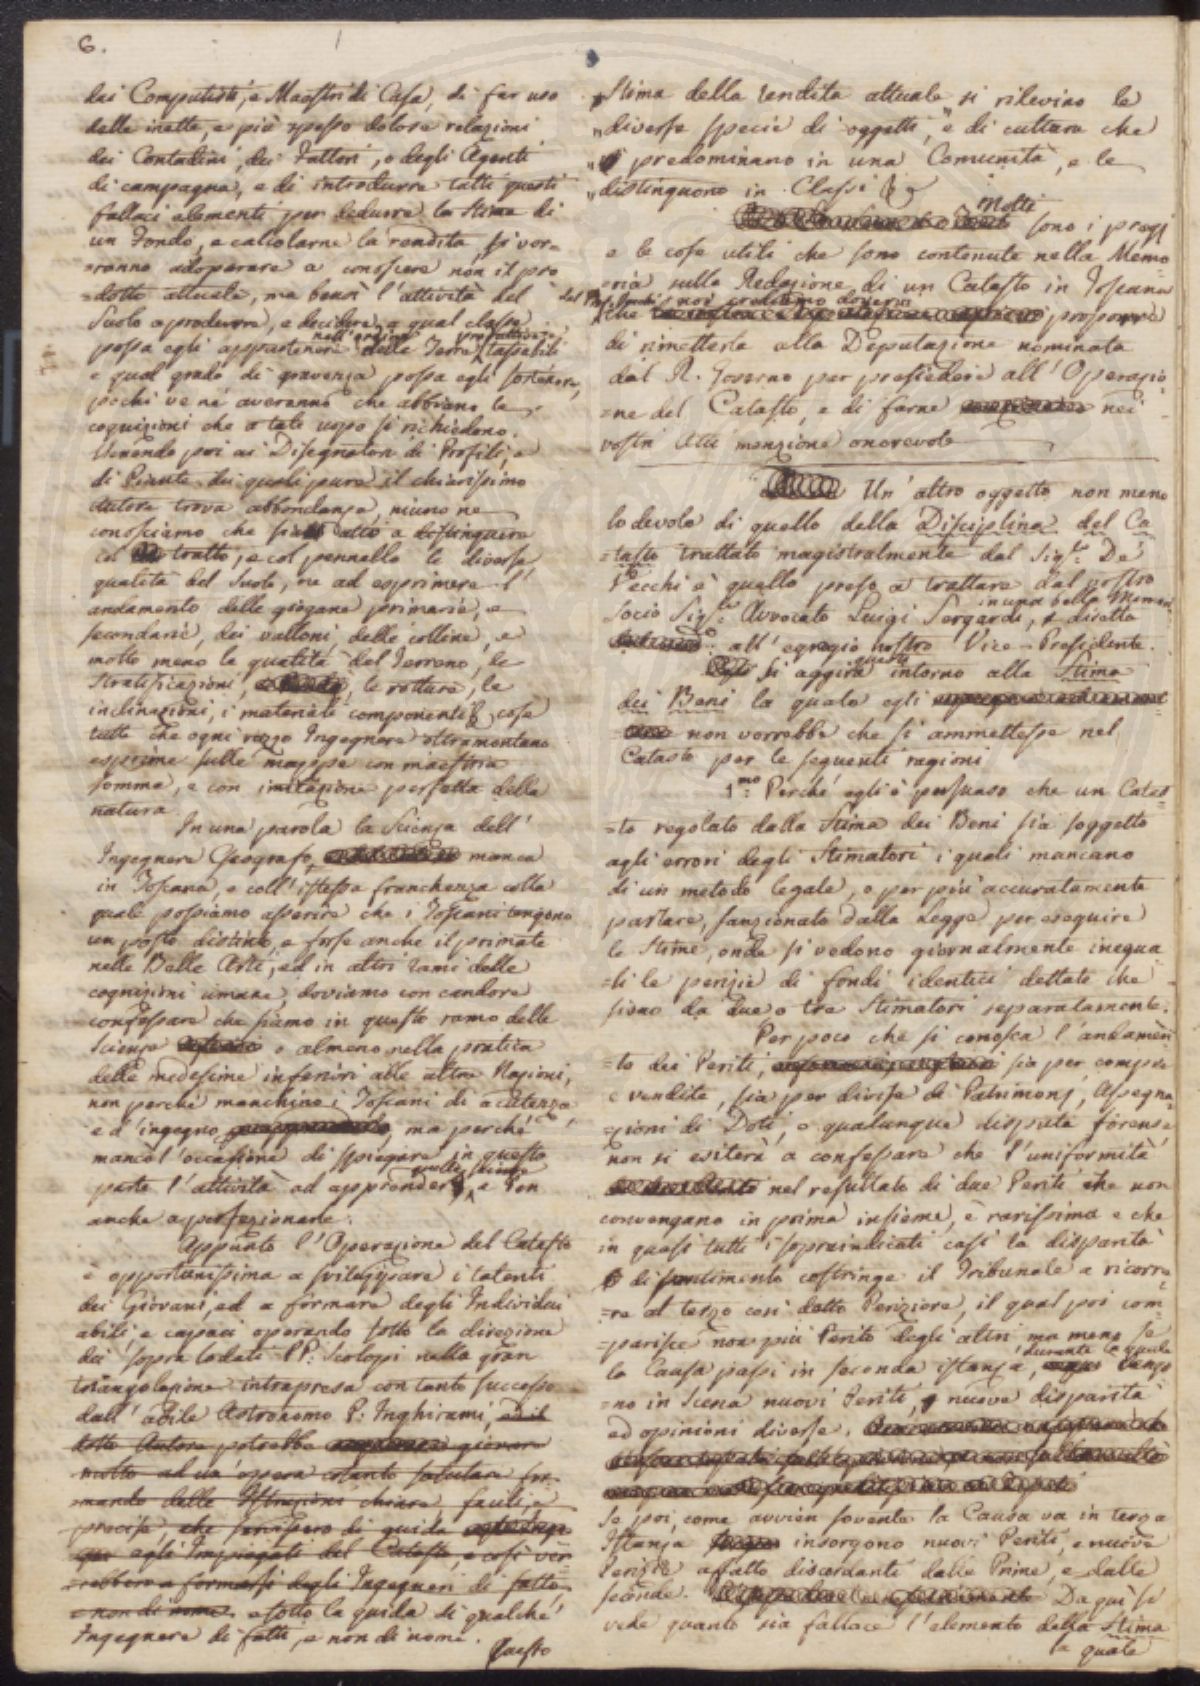 6.
dai Computisti, e Maestri di Casa, di far uso
delle inette, e più spesso dolose relazioni
dei Contadini, dei Fattori, o degli Agenti
di campagna, e di introdurre tutti questi
fallaci elementi per dedurre la Stima di
un Fondo, e calcolarne la rendita, si vor=
=ranno adoperare a conoscere non il pro
=dotto attuale, ma bensì l'attività del
Suolo a produrre, e decidere a qual classe
possa egli appartenere nell'ordine delle Terre produttive tassabili
e qual grado di gravenza possa egli sostenere,
pochi ve ne averanno che abbiano le
cognizioni che a tale uopo si richiedono.
Venendo poi ai Disegnatori di Profili, e
di Piante dei quali pure il chiarissimo
Autore trova abbondanza, niuno ne
conosciamo che sia atto a distinguere
col tratto, e col pennello le diverse
qualità del Suolo, ne ad esprimere l'
andamento delle giogane primarie, e
secondarie, dei valloni, delle colline, e
molto meno la qualità del Terreno, le
Stratificazioni, le rotture, le
inclinazioni, i materiali componenti & cose
tutte che ogni rozzo Ingegnere oltramontano
esprime sulle mappe con maestria
somma, e con imitazione perfetta della
natura.
In una parola la Scienza dell'
Ingegnere Geografo, manca
in Toscana, e coll'istessa franchezza colla
quale possiamo asserire che i Toscani tengono
un posto distinto, e forse anche il primato
nelle Belle Arti, ed in altri rami delle
cognizioni umane, doviamo con candore
confessare che siamo in questo ramo delle
Scienze o almeno nella pratica
delle medesime inferiori alle altre Nazioni,
non perché manchino i Toscani di acutezza
e d'ingegno, ma perché
mancò l'occasione di spiegare in questa
parte l'attività ad apprendere e ben
anche a perfezionare.
Appunto l'Operazione del Catasto
è opportunissima a sviluppare i talenti
dei Giovani, ed a formare degli Individui
abili, e capaci operando sotto la direzione
dei sopra lodati PP: Scolopi nella gran
triangolazione intrapresa con tanto successo
dall'abile Astronomo P: Inghirami, ed il
dotto Autore potrebbe giovare
molto ad un'opera cotanto salutare for=
=mando delle Istruzioni chiare, facili, e
precise, che servissero di guida
agli Impiegati del Catasto, e così ver=
=rebbero a formarsi degli Ingegneri di fatto
e non di nome. e sotto la guida di qualche
Ingegnere di fatti, e non di nome.
Questo
Stima della rendita attuale si rilevino le
„ diverse specie di oggetti, e di culture che
„ predominano in una Comunità, e le
„ distinguono in Classi &
Molti sono i pregj
e le cose utili che sono contenute nella Memo
=ria sulla Redazione di un Catasto in Toscana
che noi crediamo doversi
di rimetterla alla Deputazione nominata
dal R. Governo per presiedere all'Operazio
=ne del Catasto, e di farne nei
vostri Atti menzione onorevole
Un'altro oggetto non meno
lodevole di quello della Disciplina del Ca
=tasto trattato magistralmente dal Sigre. De'
Vecchi è quello preso a trattare dal nostro
Socio Sigre. Avvocato Luigi Sergardi, in una bella Memoria diretta
all'egregio nostro Vice-Presidente.
Si aggira questa intorno alla Stima
dei Beni la quale egli
non vorrebbe che si ammettesse nel
Catasto per le seguenti ragioni
1mo: Perché egli è persuaso che un Catas=
=to regolato dalla Stima dei Beni sia soggetto
agli errori degli Stimatori i quali mancano
di un metodo legale, o per più accuratamente
parlare, sanzionato dalla Legge per eseguire
le Stime, onde si vedono giornalmente inegua
=li le perizie di fondi identici dettate che
siano da due o tre Stimatori separatamente.
Per poco che si conosca l'andamen
=to dei Periti, sia per compre
e vendite, sia per divise di Patrimonj, Assegna
=zioni di Doti, o qualunque disputa forense
non si esiterà a confessare che l'uniformità
nel resultato di due Periti che non
convengano in prima insieme, è rarissima e che
in quasi tutti i sopraindicati casi la disparità
di sentimento costringe il Tribunale a ricorre
=re al terzo così detto Periziore, il qual poi com=
=parisce non più Perito degli altri ma meno se
la Causa passi in seconda istanza, durante la quale vengo
=no in Scena nuovi Periti, nuove disparità
ed opinioni diverse.
Se poi, come avvien sovente la Causa va in terza
Istanza insorgono nuovi Periti, e nuove
Perizie affatto discordanti dalle Prime, e dalle
seconde. Da qui si
vede quanto sia fallace l'elemento della Stima
la quale